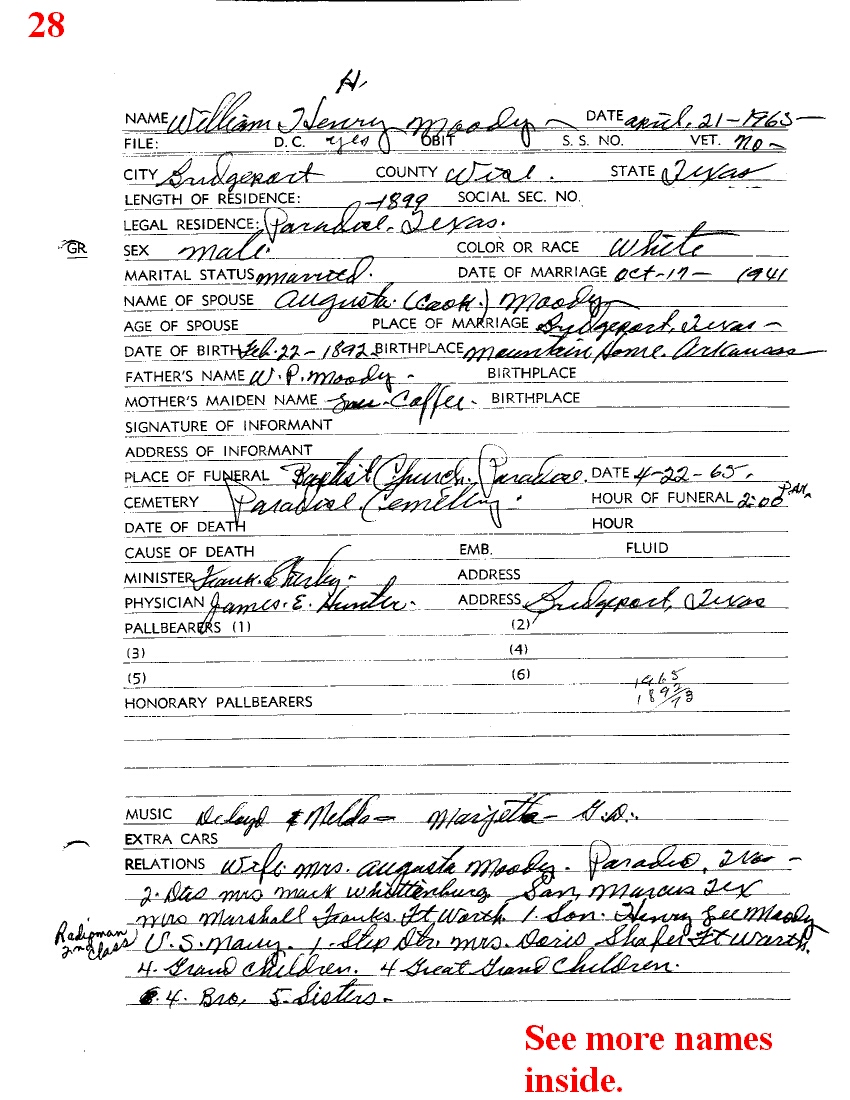 28
H.
NAME William Henry Moody - DATE april. 21-1965-
FILE: D.C. yes OBIT S. S. NO. VET. no-
CITY Bridgeport COUNTY Wise. STATE Texas
LENGTH OF RESIDENCE: -1899 SOCIAL SEC. NO.
LEGAL RESIDENCE: Paradise, Texas.
GR SEX male. COLOR OR RACE White
MARITAL STATUS married. DATE OF MARRIAGE Oct-17- 1941
NAME OF SPOUSE Augusta (Cook) Moody
AGE OF SPOUSE PLACE OF MARRIAGE Bridgeport, Texas-
DATE OF BIRTH Feb-22-1892 BIRTHPLACE Mountain Home. Arkansas
FATHER'S NAME W.P. Moody- BIRTHPLACE
MOTHER'S MAIDEN NAME Coffee- BIRTHPLACE
SIGNATURE OF INFORMANT
ADDRESS OF INFORMANT
PLACE OF FUNERAL Baptist Church, Paradise. DATE 4-22-65.
CEMETERY Paradise Cemetery. HOUR OF FUNERAL 2:00 P.M.
DATE OF DEATH HOUR
CAUSE OF DEATH EMB. FLUID
MINISTER Frank ADDRESS
PHYSICIAN James. E. Hunter. ADDRESS Bridgeport, Texas
PALLBEARERS (1) (2)
(3) (4)
(5) (6)
1965
1892/73
HONORARY PALLBEARERS
MUSIC & Melda- G.D..
EXTRA CARS
RELATIONS Wife. Mrs. Augusta Moody. Paradise, Texas-
2. Dtrs mrs mack Whittenburg San, Marcus Tex
mrs Marshall Franks Ft Worth 1. Son. Henry Lee Moody
Radioman 2nd Class U.S. Navy. 1. Step Dtr. mrs. Doris Shafer Ft Worth.
4. Grand Children. 4 Great Grand Children.
4. Bro, 5-Sisters-
See more names
inside.